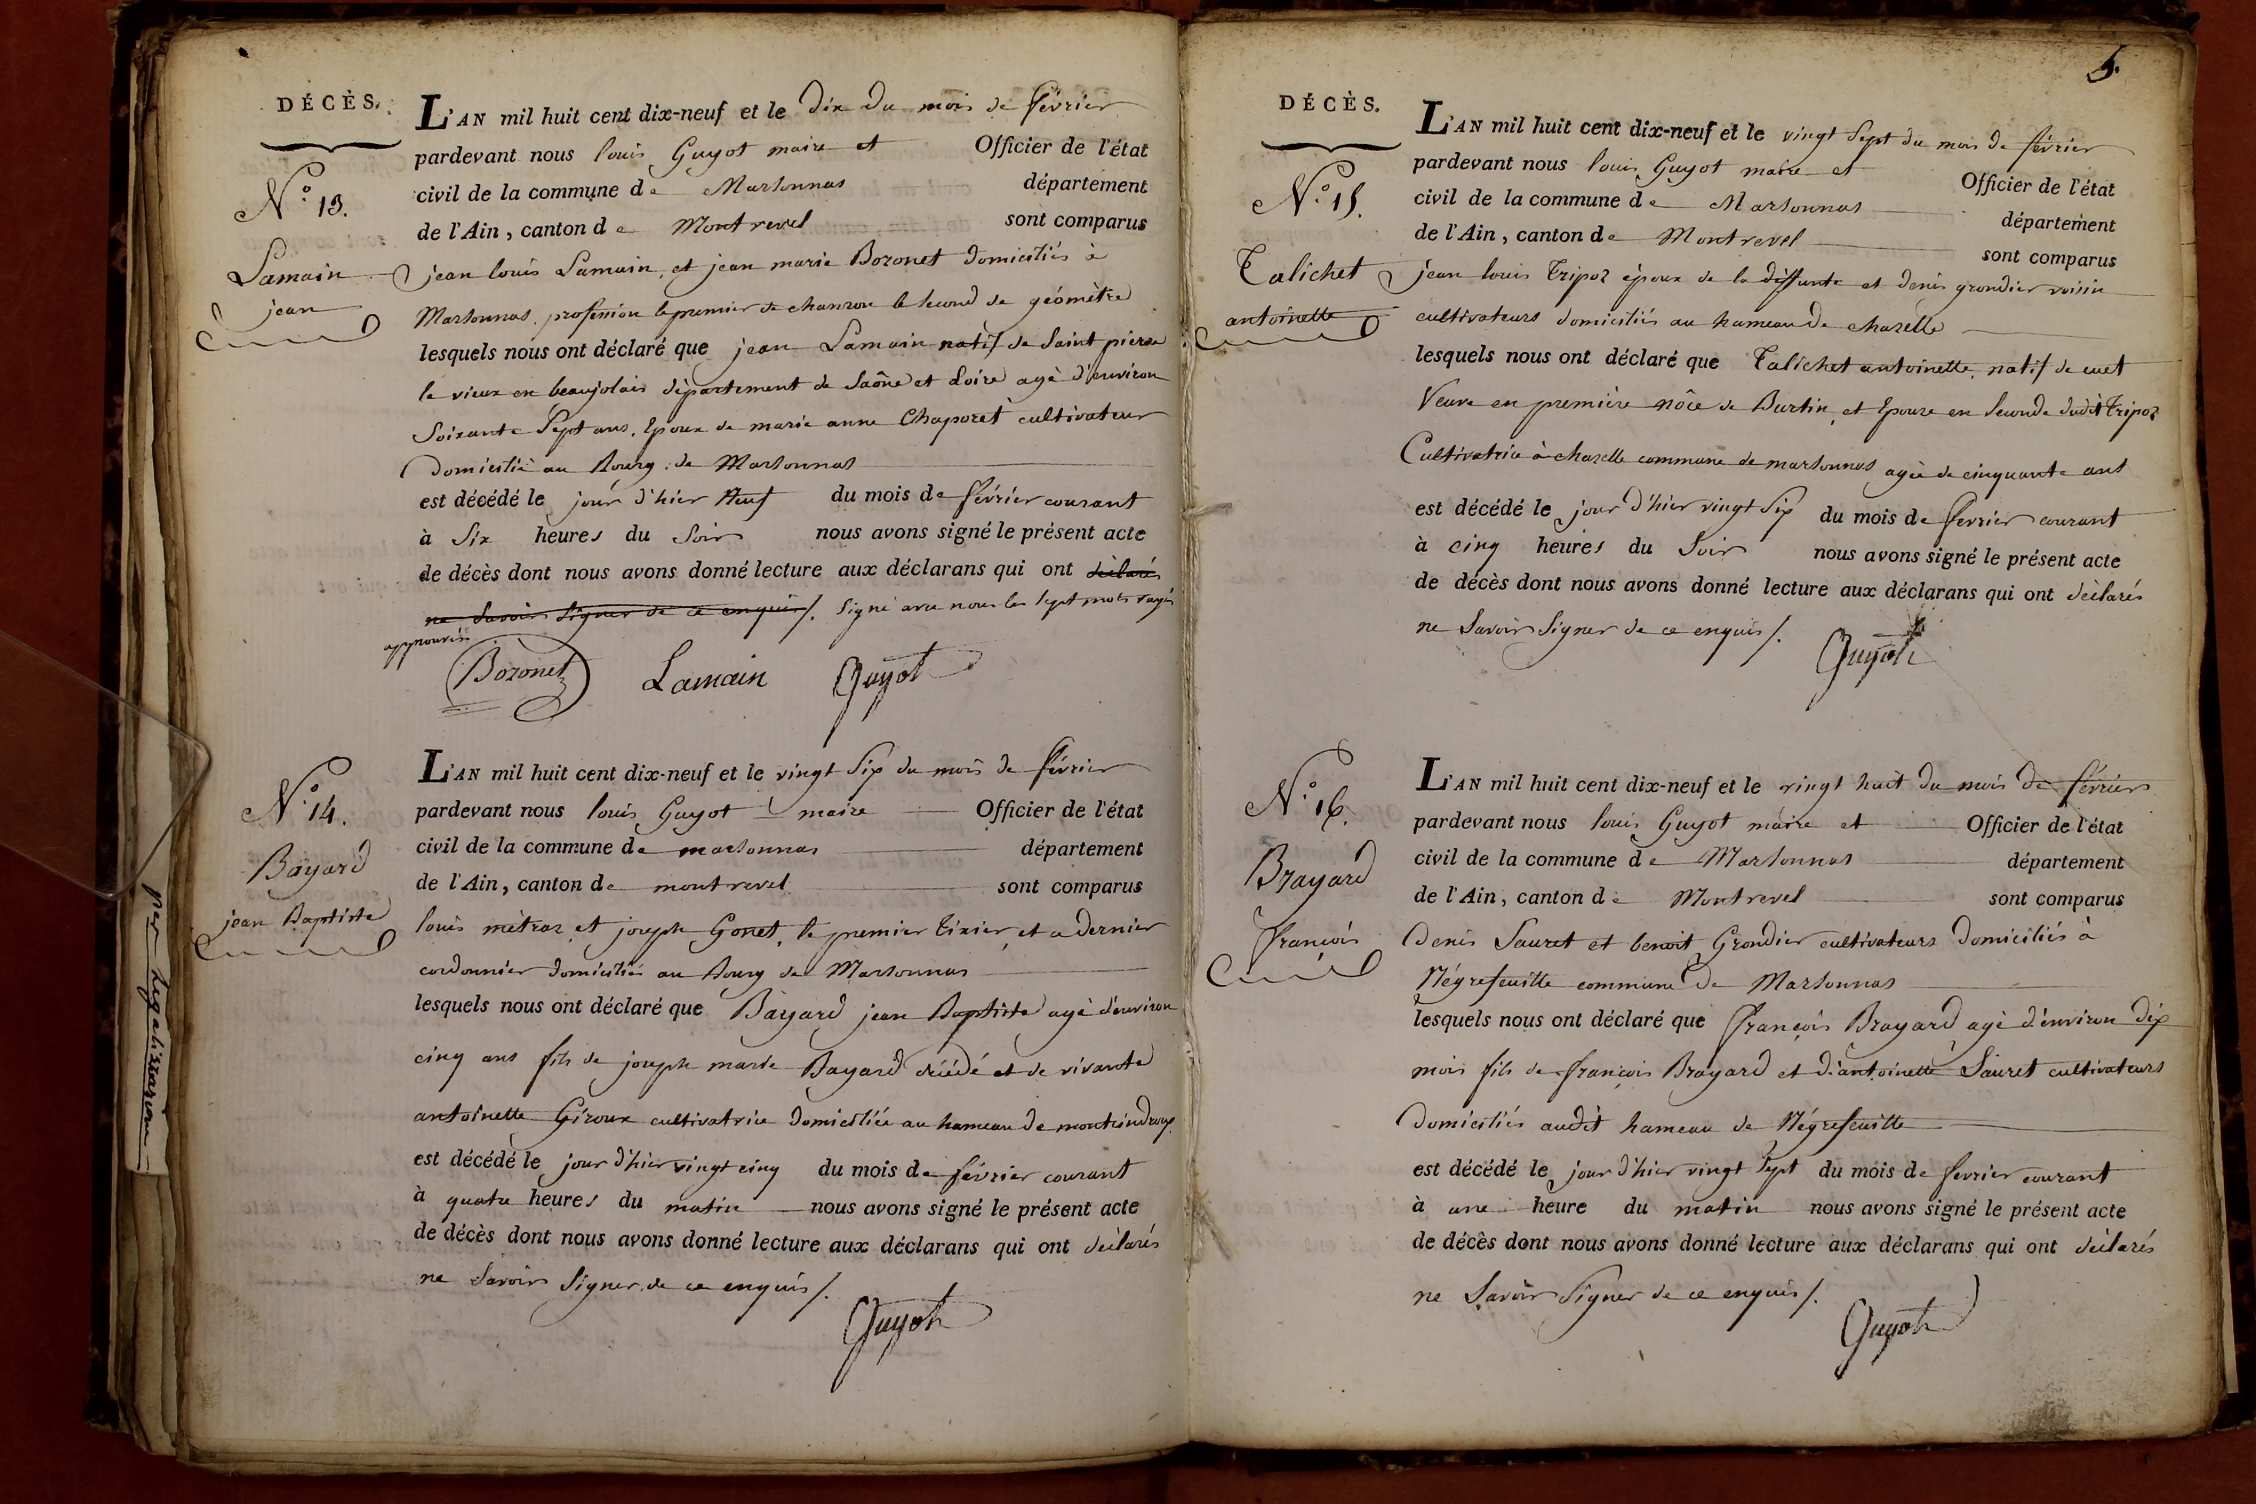 DÉCÈS.
N.° 13.
Lamain
jean
L'AN mil huit cent dix-neuf et le dix du mois de février
pardevant nous louis Guyot maire et Officier de l'état
civil de la commune de Marsonnas département
de l'Ain, canton de Montrevel sont comparus
jean louis Lamain, et jean marie Bozonet domiciliés à
Marsonnas, profession le premier de le second de géomètre
lesquels nous ont déclaré que jean Lamain natif de Saint pierre
le vieux en beaujolais département de Saône et Loire agé d'environ
Soixante Sept ans, Epoux de marie anne Chaporet cultivateur
domicilié au Bourg de Marsonnas
est décédé le jour d'hier Neuf du mois de février courant
à Six heures du Soir nous avons signé le présent acte
de décès dont nous avons donné lecture aux déclarans qui ont déclarés
ne Savoir Signer de ce enquis /. Signé avec nous les sept mots rayés
approuvés
Bozonet Lamain Guyot
N.° 14.
Bayard
jean Baptiste
L'AN mil huit cent dix-neuf et le vingt Six du mois de février
pardevant nous louis Guyot maire Officier de l'état
civil de la commune de marsonnas département
de l'Ain, canton de montrevel sont comparus
louis metraz et joseph Gonet, le premier Tixier et a dernier
cordonnier domiciliés au Bourg de Marsonnas
lesquels nous ont déclaré que Bayard jean Baptiste agé d'environ
cinq ans fils de joseph marie Bayard décédé et de vivante
antoinette Giroux cultivatrice domiciliée au hameau de
est décédé le jour d'hier vingt cinq du mois de février courant
à quatre heures du matin nous avons signé le présent acte
de décès dont nous avons donné lecture aux déclarans qui ont déclarés
ne Savoir Signer de ce enquis /.
Guyot
per legalisation
5.
DÉCÈS.
N.° 15.
Talichet
antoinette
L'AN mil huit cent dix-neuf et le vingt Sept du mois de février
pardevant nous louis Guyot maire et Officier de l'état
civil de la commune de Marsonnas département
de l'Ain, canton de Montrevel sont comparus
jean louis Tripoz époux de la deffunte et denis grondier voisin
cultivateurs domiciliés au hameau de chazelle
lesquels nous ont déclaré que Talichet antoinette, natif de cuet
Veuve en première nôce de Burtin, et Epouse en Seconde dudit Tripoz
Cultivatrice à chazelle commune de marsonnas agée de cinquante ans
est décédé le jour d'hier vingt Six du mois de fevrier courant
à cinq heures du Soir nous avons signé le présent acte
de décès dont nous avons donné lecture aux déclarans qui ont déclarés
ne Savoir Signer de ce enquis /.
Guyot
N.° 16.
Brayard
françois
L'AN mil huit cent dix-neuf et le vingt huit du mois de février
pardevant nous louis Guyot maire et Officier de l'état
civil de la commune de Marsonnas département
de l'Ain, canton de Montrevel sont comparus
Denis Sauret et benoit Grondier cultivateurs domiciliés à
Négrefeuille commune de Marsonnas
lesquels nous ont déclaré que françois Brayard agé d'environ dix
mois fils de françois Brayard et d'antoinette Sauret cultivateurs
domiciliés audit hameau de Négrefeuille
est décédé le jour d'hier vingt Sept du mois de fevrier courant
à une heure du matin nous avons signé le présent acte
de décès dont nous avons donné lecture aux déclarans qui ont déclarés
ne Savoir Signer de ce enquis /.
Guyot